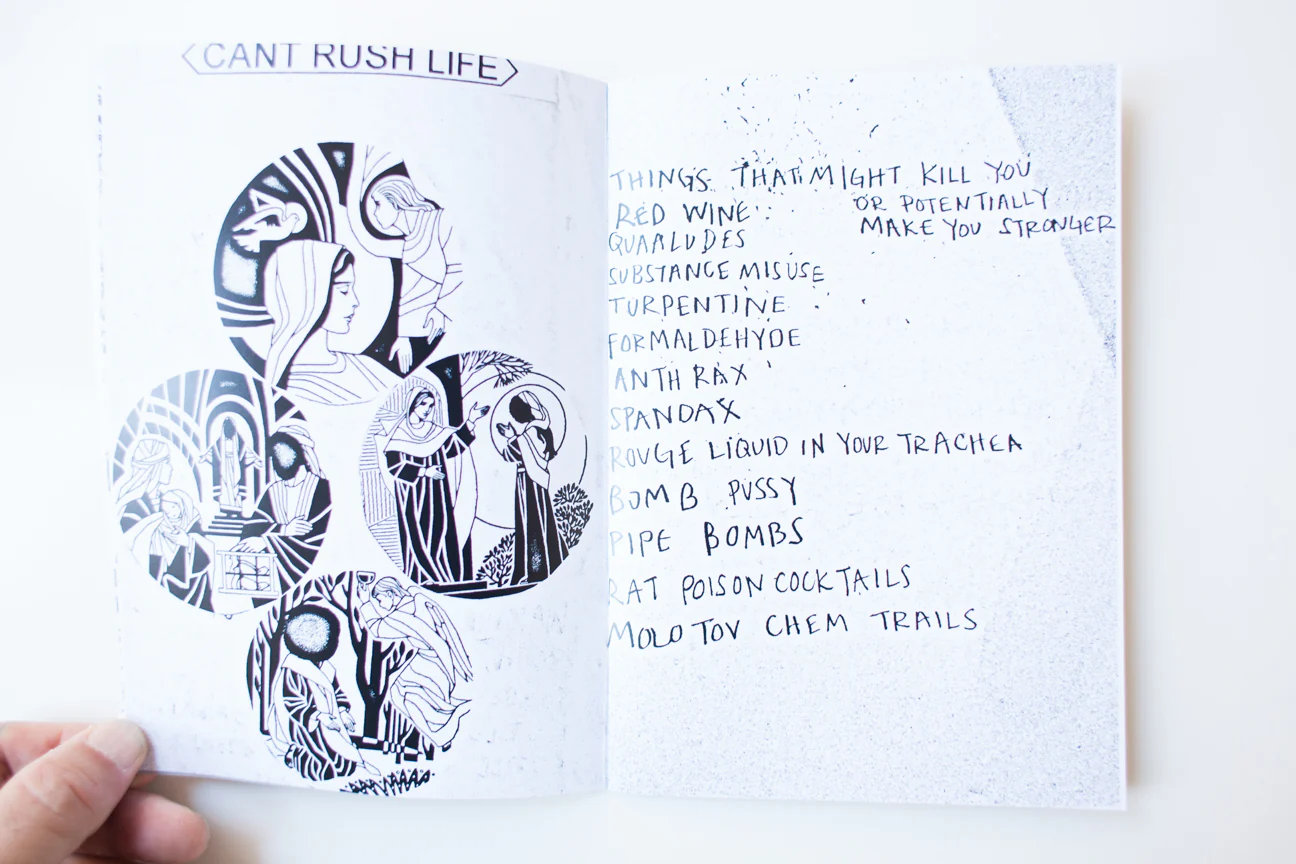 CANT RUSH LIFE
THINGS THAT MIGHT KILL YOU
OR POTENTIALLY
MAKE YOU STRONGER
RED WINE
QUAALUDES
SUBSTANCE MISUSE
TURPENTINE
FORMALDEHYDE
ANTHRAX
SPANDAX
ROUGE LIQUID IN YOUR TRACHEA
BOMB PUSSY
PIPE BOMBS
RAT POISON COCKTAILS
MOLOTOV CHEM TRAILS